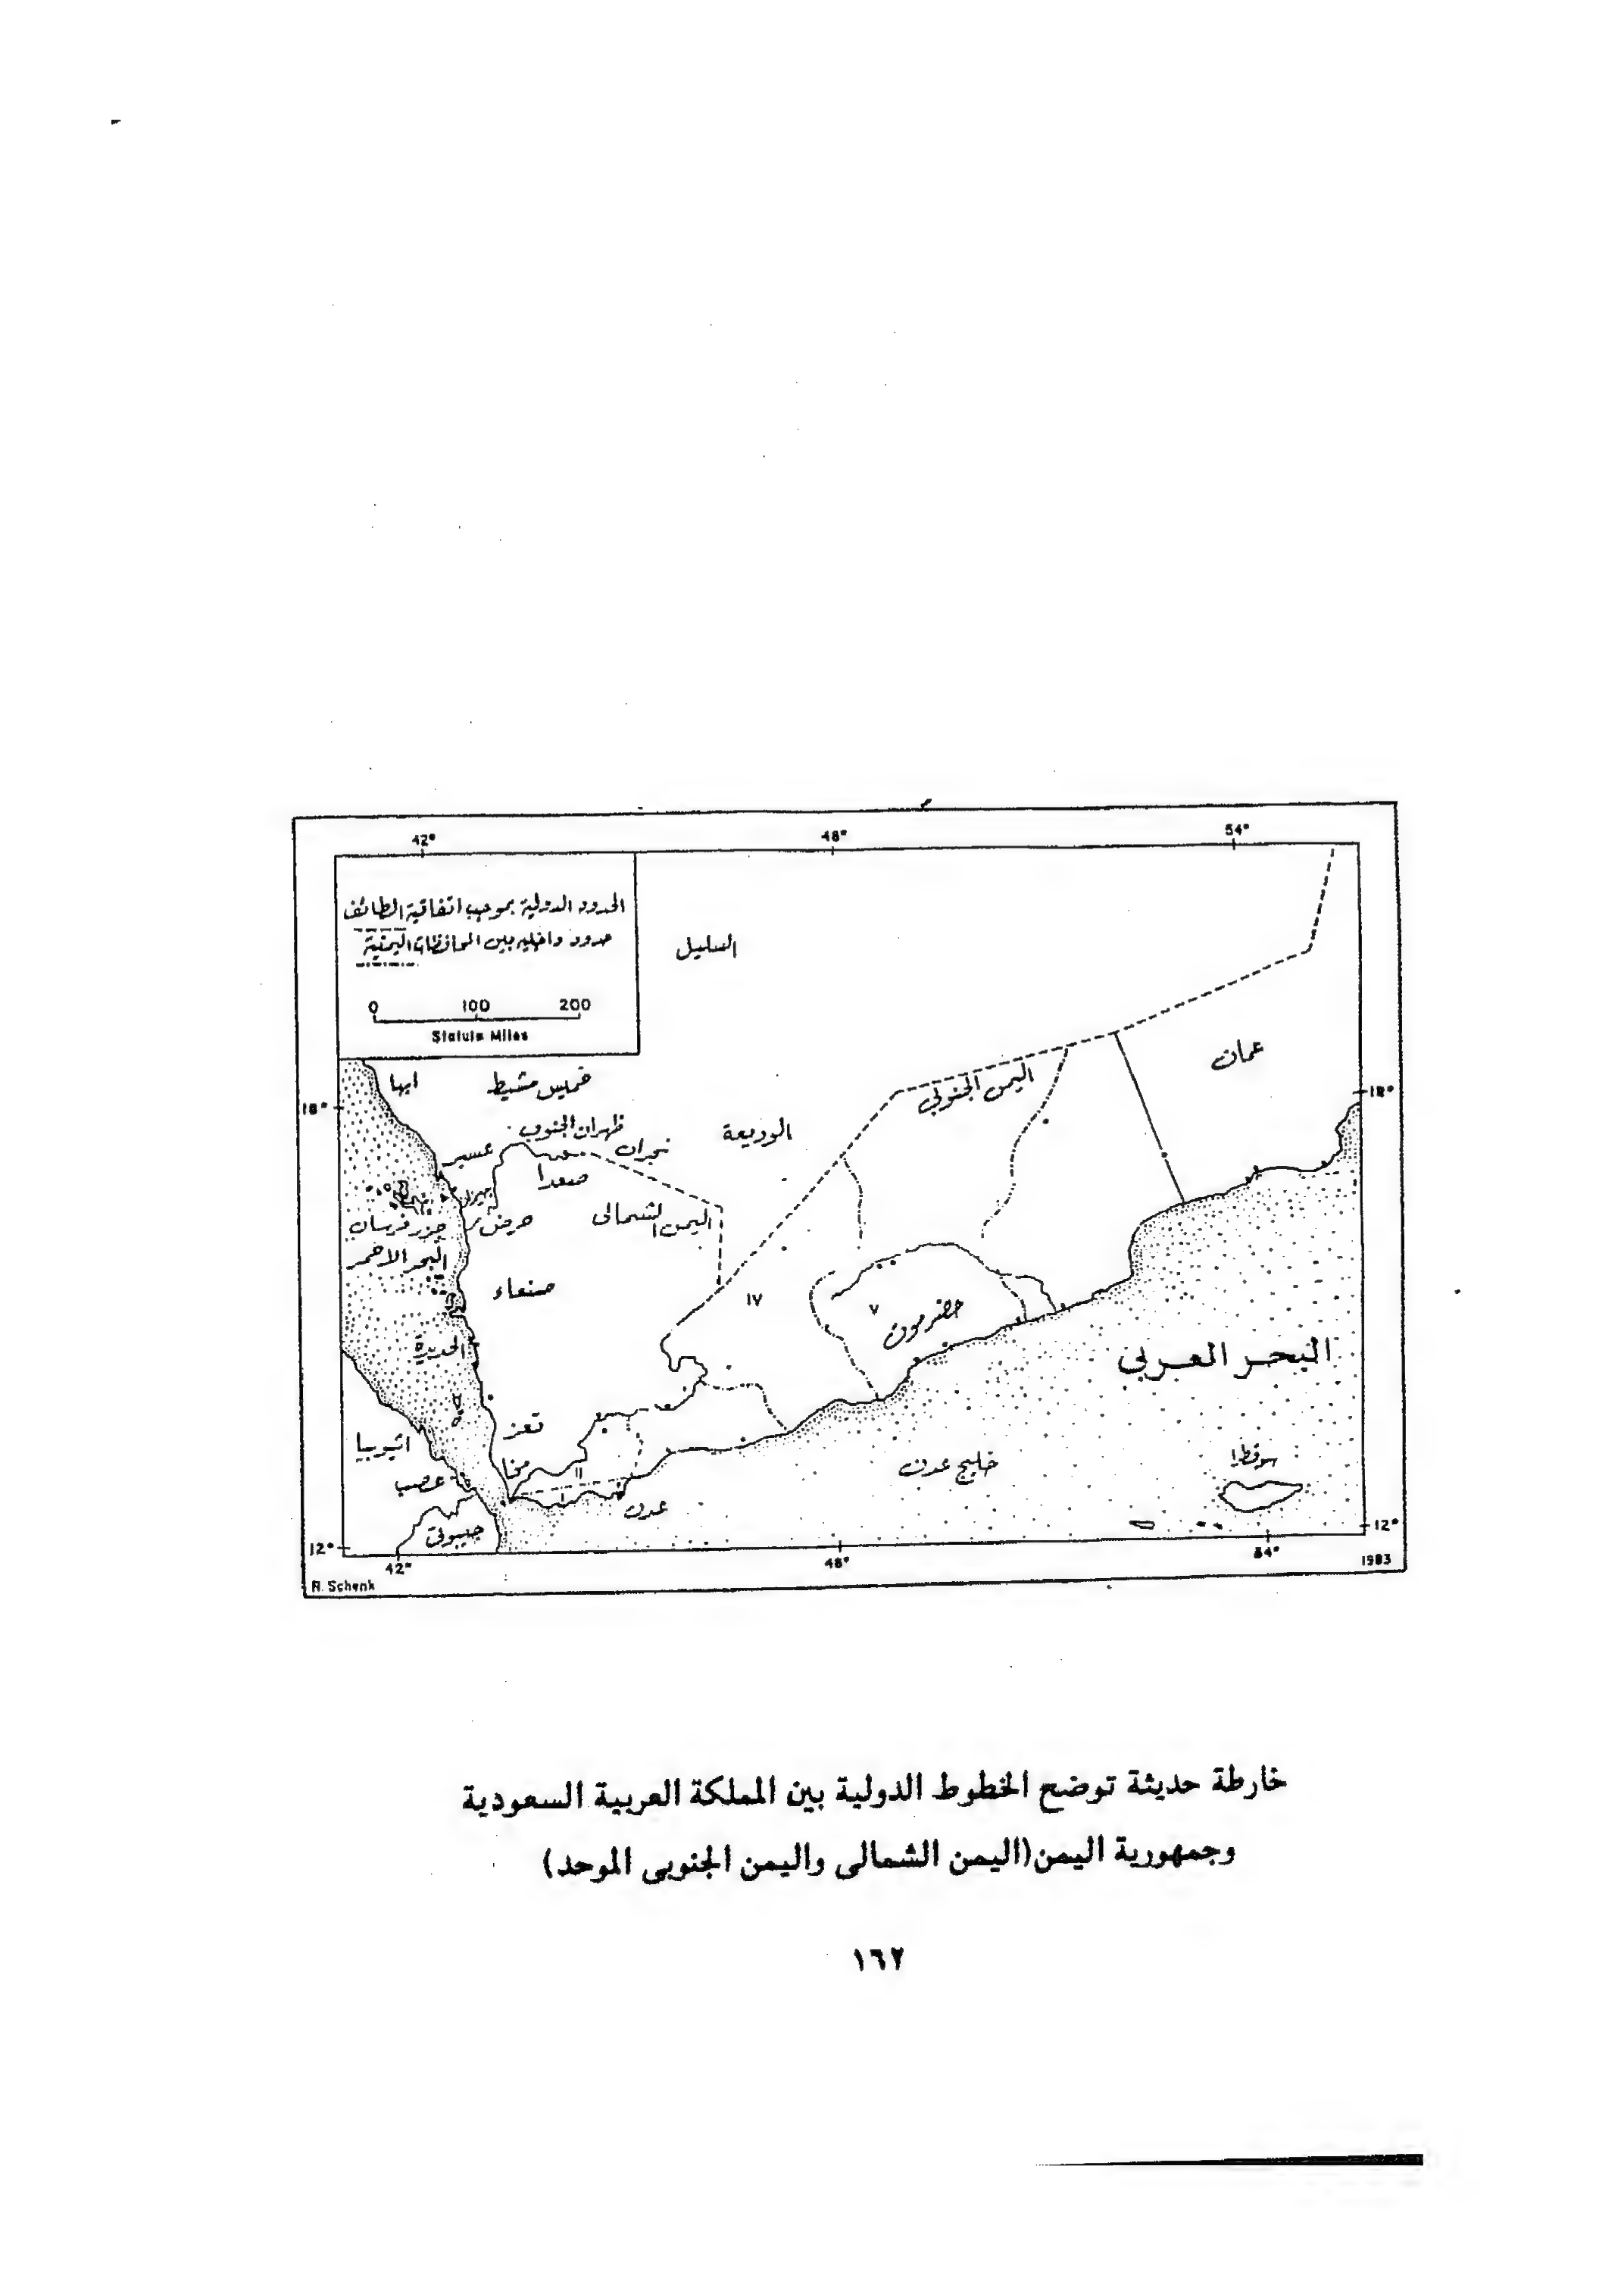 42°
48°
54°
الحدود الدولية بموجب اتفاقية الطائف
حدود داخليه بين المحافظات اليمنية
0 100 200
Statute Miles
السليل
عمان
اليمن الجنوبي
ابها
خميس مشيط
18°
18°
ظهران الجنوب
الوديعة
نجران
عسير
صعدا
جيزان
جزر فرسان
حرض
اليمن الشمالى
البحر الاحمر
صنعاء
١٧
٧
حضرموت
الحديدة
البحر العربى
تعز
اثيوبيا
مخا
خليج عدن
سوقطرا
عصب
١١
١
عدن
جيبوتى
12°
12°
42°
48°
54°
1983
R. Schenk
خارطة حديثة توضح الخطوط الدولية بين المملكة العربية السعودية
وجمهورية اليمن (اليمن الشمالى واليمن الجنوبى الموحد)
١٦٢